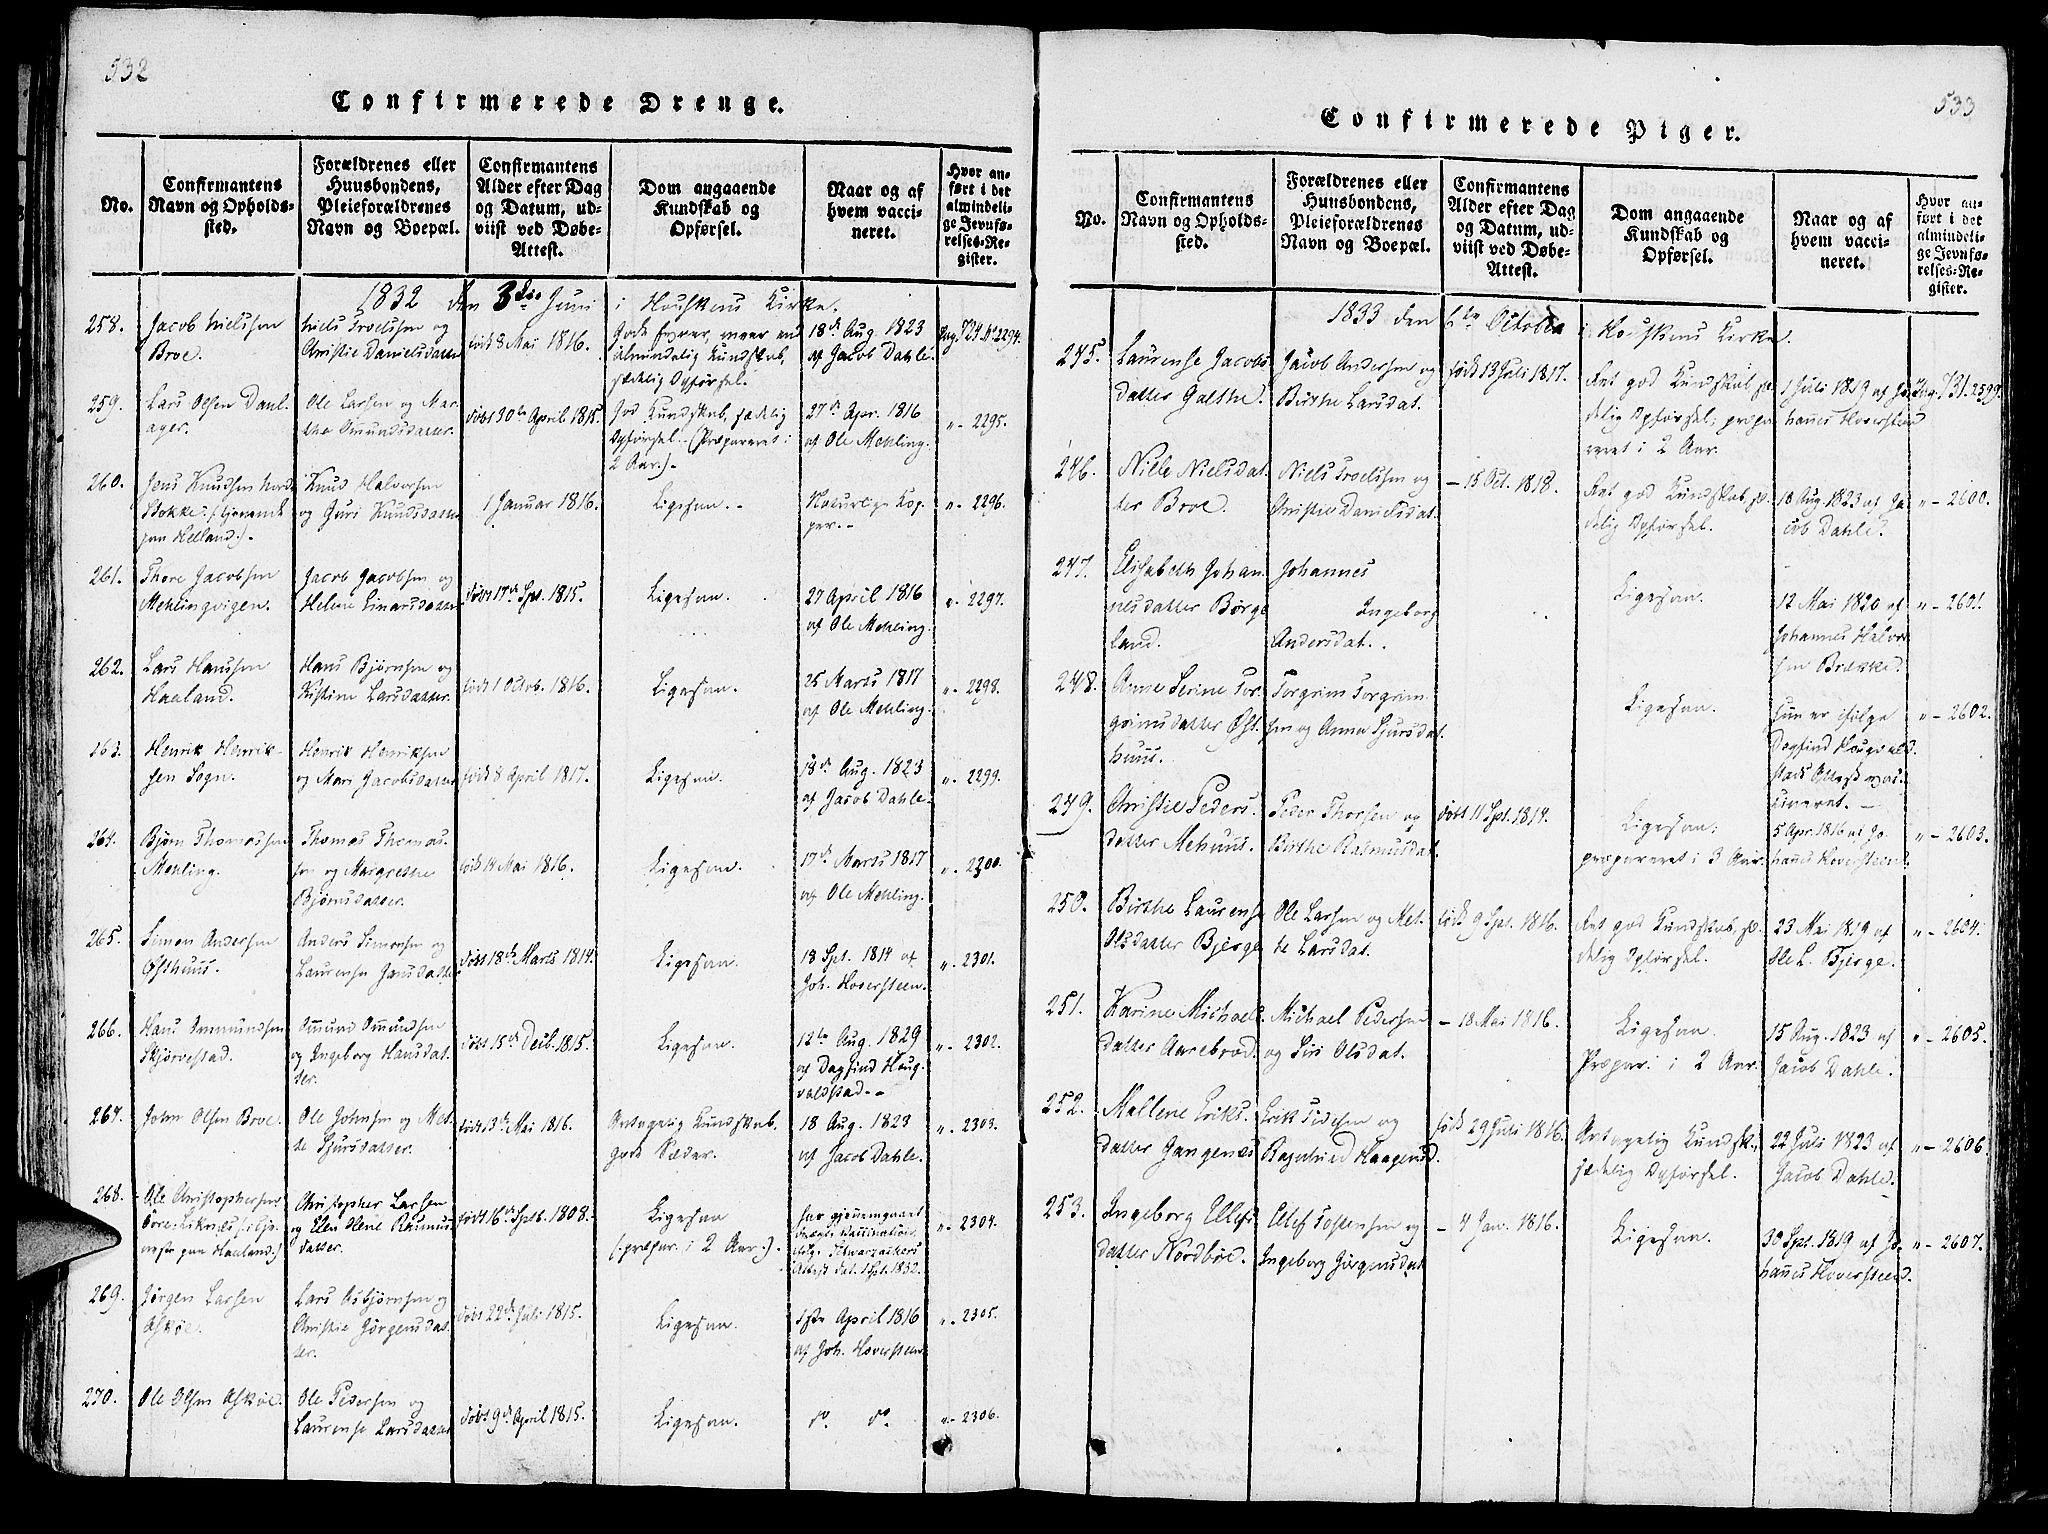 532
Confirmerede Drenge.
No.
Confirmantens
Navn og Opholds-
sted.
Forældrenes eller
Huusbondens,
Pleieforældrenes
Navn og Boepæl.
Confirmantens
Alder efter Dag
og Datum, ud-
viist ved Døbe-
Attest.
Dom angaaende
Kundskab og
Opførsel.
Naar og af
hvem vacci-
neret.
Hvor an-
ført i det
almindeli-
ge Jevnfø-
relses-Re-
gister.
1832 den 3die Juni i Houskens Kirke.
258.
Jacob Nielssen
Broe.
Niels Troelssen og
Christie Danielsdatter
født 8 Mai 1816.
almindelig Kundskab,
sædelig Opførsel.
18de Aug. 1823
af Jacob Dahle.
Pag. 724 No 2294.
259.
Lars Olsen Dahl-
ager.
Ole Larsen og Mar-
the Omundsdatter
døbt 30te April 1815.
God Kundskab, sædelig
Opførsel. (Præpareret i
2 Aar.)
27de Apr. 1816
af Ole Mehling.
" - 2295.
260.
Jens Knudsen Nord-
Stokke. (tjenende
paa Helland.)
Knud Halvorsen
og Guri Knudsdatter
1 Januar 1816.
Ligesaa.
Naturlige Kop-
per.
" - 2296.
261.
Thore Jacobsen
Mehlingvigen.
Jacob Jacobsen og
Helene Einarsdatter
døbt 17de Spt. 1815.
Ligesaa.
27 April 1816
af Ole Mehling.
" - 2297.
262.
Lars Hansen
Haaland.
Hans Bjørnsen og
Kistine Larsdatter.
født 1 Octob. 1816.
Ligesaa.
25 Marts 1817
af Ole Mehling.
" - 2298.
263.
Henrik Henrik-
sen Sogn.
Henrik Henriksen
og Mari Jacobsdatter
født 8 April 1817.
Ligesaa.
18de Aug. 1823
af Jacob Dahle.
" - 2299.
264.
Bjørn Thomassen
Mehling.
Thomas Thomas-
sen og Margrethe
Bjørnsdatter.
født 14 Mai 1816.
Ligesaa.
17de Marts 1817
af Ole Mehling.
" - 2300.
265.
Simon Andersen
Østhuus.
Anders Simonsen og
Laurense Jansdatter
døbt 18de Marts 1814.
Ligesaa.
18 Spt. 1814 af
Joh. Hoversteen.
" - 2301.
266.
Hans Ommundsen
Skjørvestad.
Omund Omundsen
og Ingeborg Hansdat-
ter.
døbt 15de Decb. 1815.
Ligesaa.
12te Aug. 1829
af Dagfind Houg-
valdstad.
" - 2302.
267.
John Olsen Broe.
Ole Johnsen og Met-
te Sjursdatter.
født 13de Mai 1816.
Antagelig Kundskab,
gode Sæder.
18 Aug. 1823
af Jacob Dahle.
" - 2303.
268.
Ole Christophersen
paa Haaland.)
Christopher Larsen
og Elen Helene Rasmus-
datter.
født 16de Septb. 1808.
Ligesaa
(præpar. i 2 Aar.)
har gjennemgaaet
Vaccination
Schwarzachers
Attest dat. 1 Spt. 1832.
" - 2304.
269.
Jørgen Larsen
Askøe.
Lars Asbjørnsen og
Christie Jørgensdat-
ter.
døbt 22de Juli 1815.
Ligesaa.
1ste April 1816
af Joh. Hoversteen
" - 2305.
270.
Ole Olsen Askøe.
Ole Pedersen og
Laurense Larsdatter
døbt 9de April 1815.
Ligesaa.
do do
" - 2306.
533
Confirmerede Piger.
No.
Confirmantens
Navn og Opholds-
sted.
Forældrenes eller
Huusbondens,
Pleieforældrenes
Navn og Boepæl.
Confirmantens
Alder efter Dag
og Datum, ud-
viist ved Døbe-
Attest.
Dom angaaende
Kundskab og
Opførsel.
Naar og af
hvem vacci-
neret.
Hvor an-
ført i det
almindeli-
ge Jevnfø-
relses-Re-
gister.
1833 den 6te October i Houskens Kirke.
245.
Laurense Jacobs
datter Galthe.
Jacob Andersen og
Birthe Larsdat.
født 13 Juli 1817.
Ret god Kundskab, sæ-
delig Opførsel, præpa-
reret i 2 Aar.
1 Juli 1819 af Jo-
hannes Hoversteen
Pag. 731. 2599.
246.
Nille Nielsdat-
ter Broe.
Niels Troelssen og
Christie Danielsdat.
- 15 Oct. 1818.
Ret god Kundskab, sæ-
delig Opførsel.
18 Aug. 1823 af Ja-
cob Dahle.
" - 2600.
247.
Elisabeth Johan-
nesdatter Børge
land.
Johannes
Ingeborg
Andersdat.
Ligesaa.
12 Mai 1820 af
Johannes Halvor-
sen Brække.
" - 2601.
248.
Anne Serine Tor-
grimsdatter Øst-
huus.
Torgrim Torgrim-
sen og Anna Sjursdat.
Ligesaa.
hun er ifølge
Dagfind Hougvald-
stads Attest vac-
cineret.
" - 2602.
249.
Christie Peders-
datter Mehuus.
Peder Thorsen og
Birthe Rasmusdat.
døbt 11 Spt. 1814.
Ligesaa;
præpareret i 3 Aar.
5 Apr. 1816 af Jo-
hannes Hoversteen.
" - 2603.
250.
Birthe Laurense
Olsdatter Bjerge
Ole Larsen og Met-
te Larsdat.
født 9 Spt. 1816.
Ret god Kundskab, sæ-
delig Opførsel.
23 Mai 1819 af
Ole L. Bjerge.
" - 2604.
251.
Karine Michaels
datter Aarebrod.
Michael Pedersen
og Siri Olsdat.
- 18 Mai 1816.
Ligesaa.
Præpar. i 2 Aar.
15 Aug. 1823 af
Jacob Dahle.
" - 2605.
252.
Mallene Eriks-
datter Gangenæs
Erik Pedersen og
Ragnhild Haagensd.
født 29 Juli 1816.
Antagelig Kundsk.,
sædelig Opførsel.
22 Juli 1823 af
Jacob Dahle.
" - 2606.
253.
Ingeborg Ellefs
datter Nordbøe.
Ellef Tostensen og
Ingeborg Jørgensdat
- 4 Jan. 1816.
Ligesaa.
30 Spt. 1819 af Jo-
hannes Hoversteen.
" - 2607.